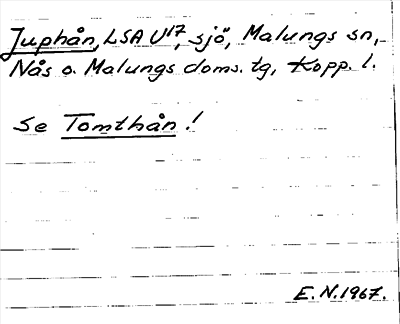 Juphån, LSA U17, sjö, Malungs sn,
Nås o. Malungs doms. tg, Kopp. l.
Se Tomthån!
E. N. 1967.